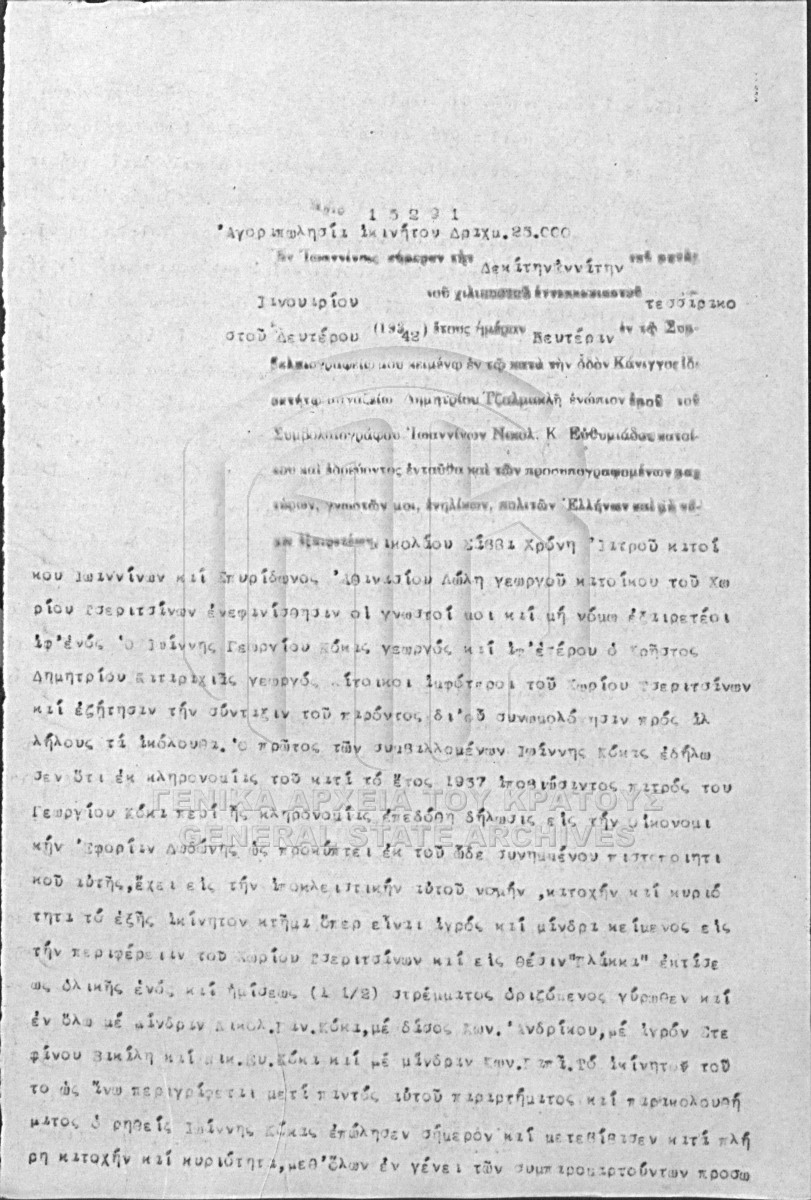 15291
Ἀγοραπωλησία ἀκινήτου Δραχμ.25.000
Ἐν Ἰωαννίνοις σήμερον τὴν Δεκάτηνἐννάτην τοῦ μηνὸς
Ἰανουαρίου τοῦ χιλιοστοῦ ἐννεακοσιοστοῦ τεσσαρακο
στοῦ Δευτέρου (1942) ἔτους ἡμέραν Δευτέραν ἐν τῷ Συμ-
βολαιογραφείῳ μου κειμένῳ ἐν τῷ κατὰ τὴν ὁδὸν Κάνιγγος ἰδι-
οκτήτῳ μαγαζείῳ Δημητρίου Τζαλμακλῆ ἐνώπιον ἐμοῦ τοῦ
Συμβολαιογράφου Ἰωαννίνων Νικολ. Κ Εὐθυμιάδου κατοί-
κου καὶ ἑδρεύοντος ἐνταῦθα καὶ τῶν προσυπογραφομένων μαρ
τύρων, γνωστῶν μοι, ἐνηλίκων, πολιτῶν Ἑλλήνων καὶ μὴ νό-
μῳ ἐξαιρετέων Νικολάου Σάββα Χρόνη Ἰατροῦ κατοί
κου Ἰωαννίνων καί Σπυρίδωνος Ἀθανασίου Λώλη γεωργοῦ κατοίκου τοῦ Χω
ρίου Τσεριτσάνων ἐνεφανίσθησαν οἱ γνωστοί μοι καί μή νόμω ἐξαιρετέοι
ἀφ'ἑνός ὁ Ἰωάννης Γεωργίου Κόκας γεωργός καί ἀφ'ἑτέρου ὁ Χρῆστος
Δημητρίου Καταραχιᾶς γεωργός κάτοικοι ἀμφότεροι τοῦ Χωρίου Τσεριτσάνων
καί ἐζήτησαν τήν σύνταξιν τοῦ παρόντος δι'οὗ συνωμολόγησαν πρός ἀλ
λήλους τά ἀκόλουθα. Ὁ πρῶτος τῶν συμβαλλομένων Ἰωάννης Κόκας ἐδήλω
σεν ὅτι ἐκ κληρονομίας τοῦ κατά τό ἔτος 1937 ἀποβιώσαντος πατρός του
Γεωργίου Κόκα περί ἧς κληρονομίας ἐπεδόθη δήλωσις εἰς τήν οἰκονομι
κήν Ἐφορίαν Δωδώνης ὡς προκύπτει ἐκ τοῦ ὧδε συνημμένου πιστοποιητι
κοῦ αὐτῆς, ἔχει εἰς τήν ἀποκλειστικήν αὐτοῦ νομήν ,κατοχήν καί κυριό
τητα τό ἑξῆς ἀκίνητον κτῆμα ὅπερ εἶναι ἀγρός καί μάνδρα κείμενος εἰς
τήν περιφέρειαν τοῦ Χωρίου Τσεριτσάνων καί εἰς θέσιν"Πλάκκα" ἐκτάσε
ως ὁλικῆς ἑνός καί ἡμίσεως (1 1/2) στρέμματος ὁριζόμενος γύρωθεν καί
ἐν ὅλω μέ μάνδραν Νικολ. Κόκα,μέ δάσος Κων. Ἀνδρίκου,μέ ἀγρόν Στε
φάνου Βακάλη καί Νικ. Κόκα καί μέ μάνδραν Κων. Τό ἀκίνητον τοῦ
το ὡς ἄνω περιγράφεται μετά παντός αὐτοῦ παραρτήματος καί παρακολουθή
ματος ὁ ρηθείς Ἰωάννης Κόκας ἐπώλησεν σήμερον καί μετεβίβασεν κατά πλή
ρη κατοχήν καί κυριότητα,μεθ'ὅλων ἐν γένει τῶν συμπαρομαρτούντων προσω
ΓΕΝΙΚΑ ΑΡΧΕΙΑ ΤΟΥ ΚΡΑΤΟΥΣ
GENERAL STATE ARCHIVES